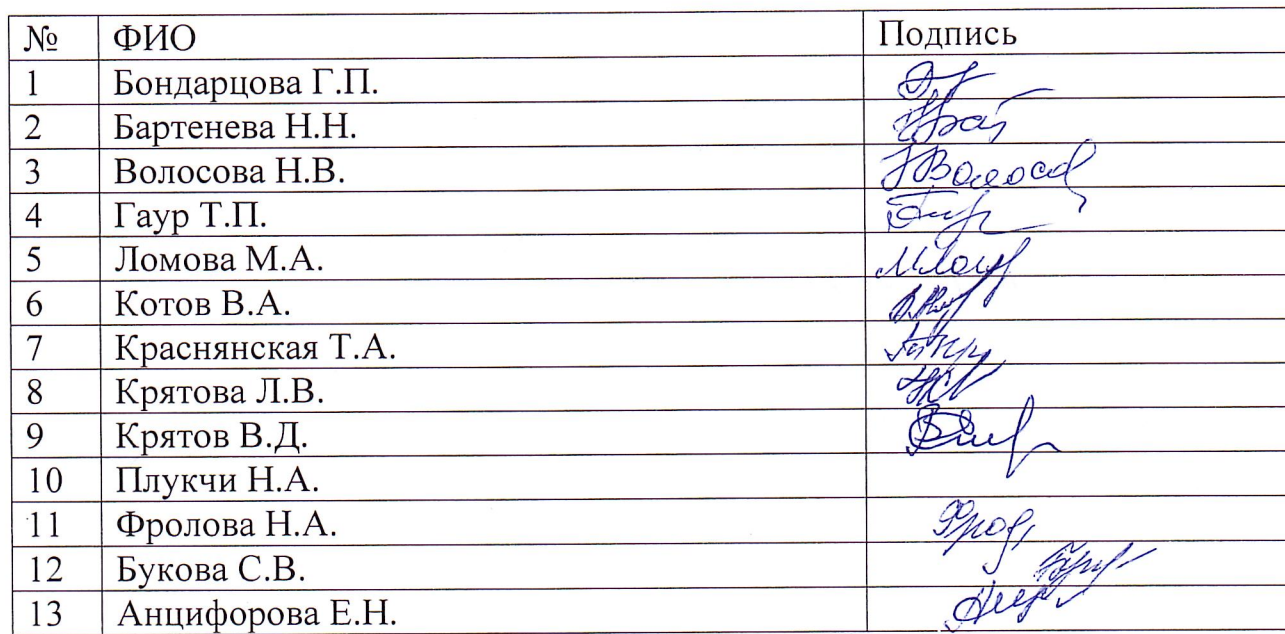 № ФИО Подпись
1 Бондарцова Г.П.
2 Бартенева Н.Н.
3 Волосова Н.В.
4 Гаур Т.П.
5 Ломова М.А.
6 Котов В.А.
7 Краснянская Т.А.
8 Крятова Л.В.
9 Крятов В.Д.
10 Плукчи Н.А.
11 Фролова Н.А.
12 Букова С.В.
13 Анцифорова Е.Н.